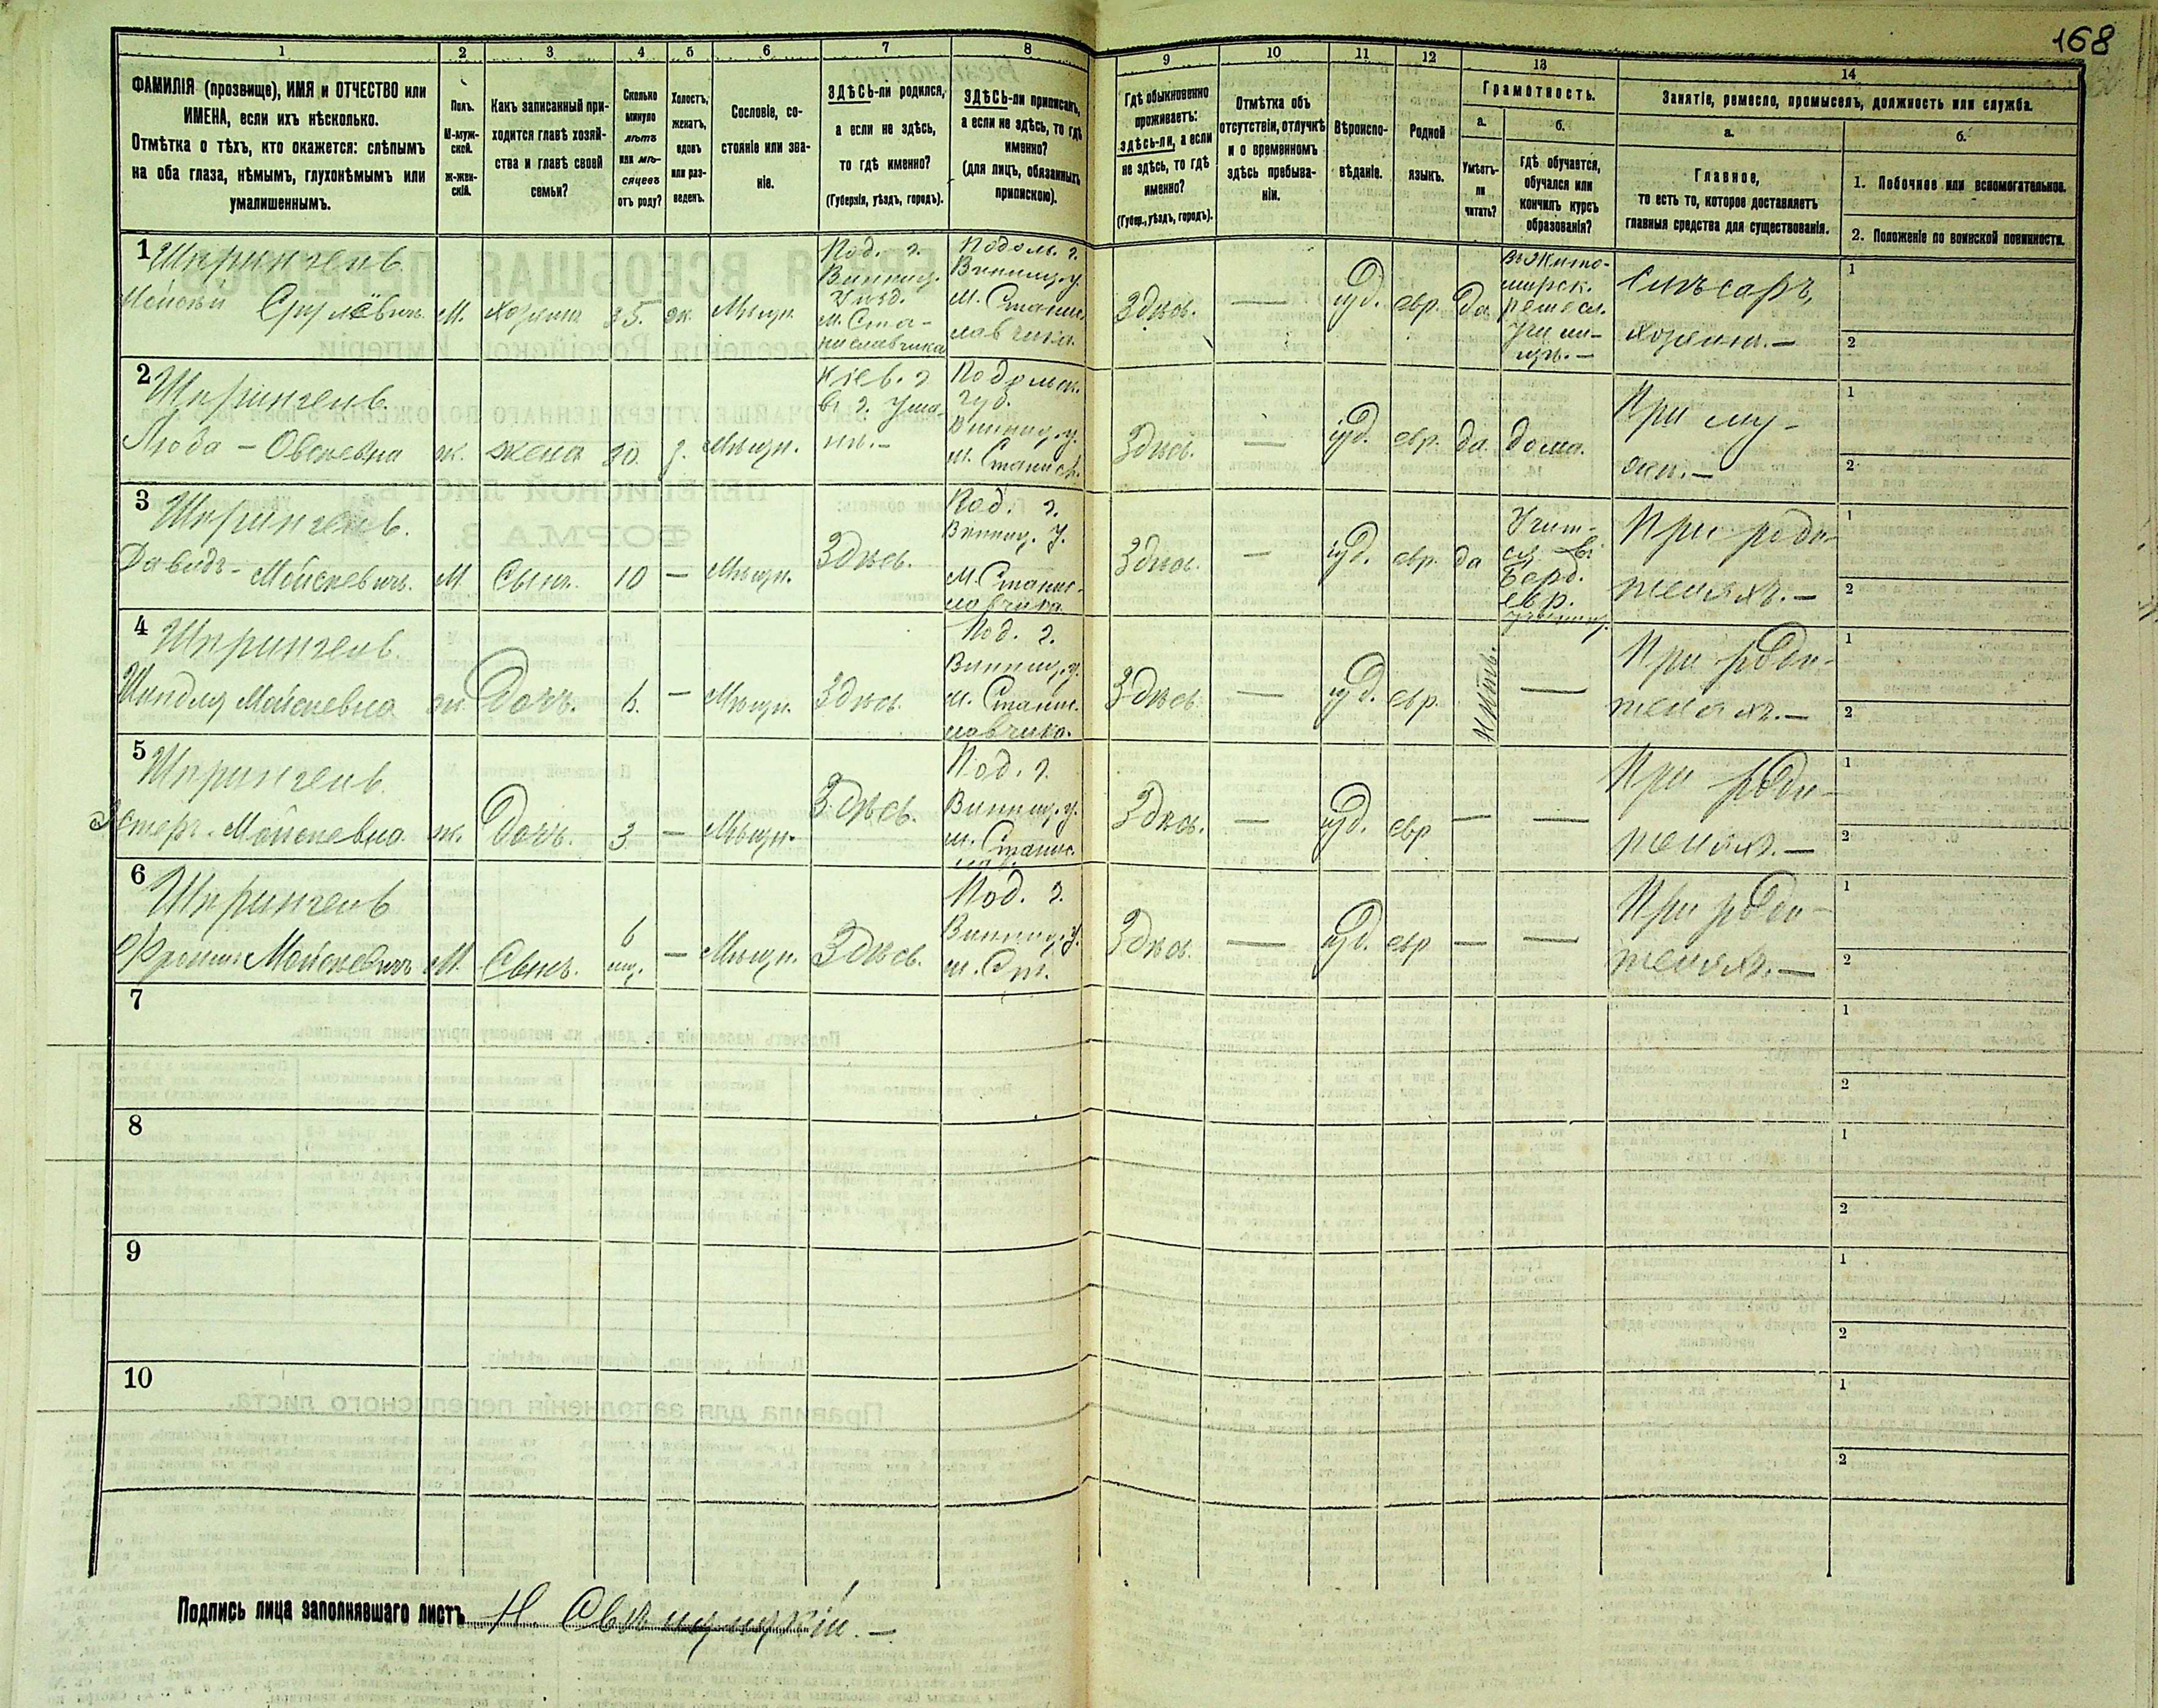 168
1 2 3 4 5 6 7 8 9 10 11 12 13 14
ФАМИЛІЯ (прозвище), ИМЯ и ОТЧЕСТВО или
ИМЕНА, если ихъ нѣсколько.
Отмѣтка о тѣхъ, кто окажется: слѣпымъ
на оба глаза, нѣмымъ, глухонѣмымъ или
умалишеннымъ.
Полъ.
М-муж-
ской.
Ж-жен-
скій.
Какъ записанный при-
ходится главѣ хозяй-
ства и главѣ своей
семьи?
Сколько
минуло
лѣтъ
или мѣ-
сяцевъ
отъ роду?
Холостъ,
женатъ,
вдовъ
или раз-
веденъ.
Сословіе, со-
стояніе или зва-
ніе.
ЗДѢСЬ-ли родился,
а если не здѣсь,
то гдѣ именно?
(Губернія, уѣздъ, городъ).
ЗДѢСЬ-ли приписанъ,
а если не здѣсь, то гдѣ
именно?
(для лицъ, обязанныхъ
припискою).
Гдѣ обыкновенно
проживаетъ:
здѣсь-ли, а если
не здѣсь, то гдѣ
именно?
(Губер., уѣздъ, городъ).
Отмѣтка объ
отсутствіи, отлучкѣ
и о временномъ
здѣсь пребыва-
ніи.
Вѣроиспо-
вѣданіе.
Родной
языкъ.
Грамотность.
а.
Умѣетъ-
ли
читать?
б.
гдѣ обучается,
обучался или
кончилъ курсъ
образованія?
Занятіе, ремесло, промыселъ, должность или служба.
а.
Главное,
то есть то, которое доставляетъ
главныя средства для существованія.
б.
1. Побочное или вспомогательное.
2. Положеніе по воинской повинности.
1 Шпрингель.
Мойсѣй Срулёвичъ М. Хозяинъ 35. ж. Мѣщн.
Под. г.
Винниц.
Уѣзд.
м. Ста-
ниславчика
Подоль. г.
Винниц. у.
м. Станис
лавчика.
Здѣсь. — іуд. евр. да
въ Жито-
мирск.
ремесл.
учили-
щѣ. —
Слѣсаръ,
хозяинъ. —
1
2
2 Шпрингель.
Люба - Овсѣевна ж. жена 30. з. Мѣщн.
Кіев. г
въ г. Ума-
нѣ. —
Подольск.
губ.
Винниц. у.
м. Станисл.
Здѣсь. — іуд. евр. да. дома.
При му-
жѣ. —
1
2
3 Шпрингель.
Давидъ - Мойсѣевичъ. М Сынъ. 10 — Мѣщн. Здѣсь.
Под. г.
Винниц. у.
м. Станис-
лавчика
Здѣсь. — іуд. евр. да
Учит-
ся въ
Берд.
евр.
училищ.
При роди-
теляхъ. —
1
2
4 Шпрингель.
Шиндля Мойсѣевна ж. Дочь. 6. — Мѣщн. Здѣсь.
Под. г.
Винниц. у.
м. Станис.
лавчика.
Здѣсь — іуд. евр. Нѣтъ. —
При роди-
теляхъ. —
1
2
5 Шпрингель.
Эстеръ. Мойсѣевна. ж. Дочь. 3 — Мѣщн. Здѣсь.
Под. г.
Винниц. у.
м. Станис.
лав.
Здѣсь. — іуд. евр — —
При роди-
теляхъ. —
1
2
6 Шпрингель
Фроимъ Мойсѣевичъ М. Сынъ. 6 мц. — Мѣщн. Здѣсь.
Под. г.
Винниц. у.
м. Ст.
Здѣсь. — іуд. евр — —
При роди-
теляхъ. —
1
2
7
1
2
8
1
2
9
1
2
10
1
2
Подпись лица заполнявшаго листъ Н.